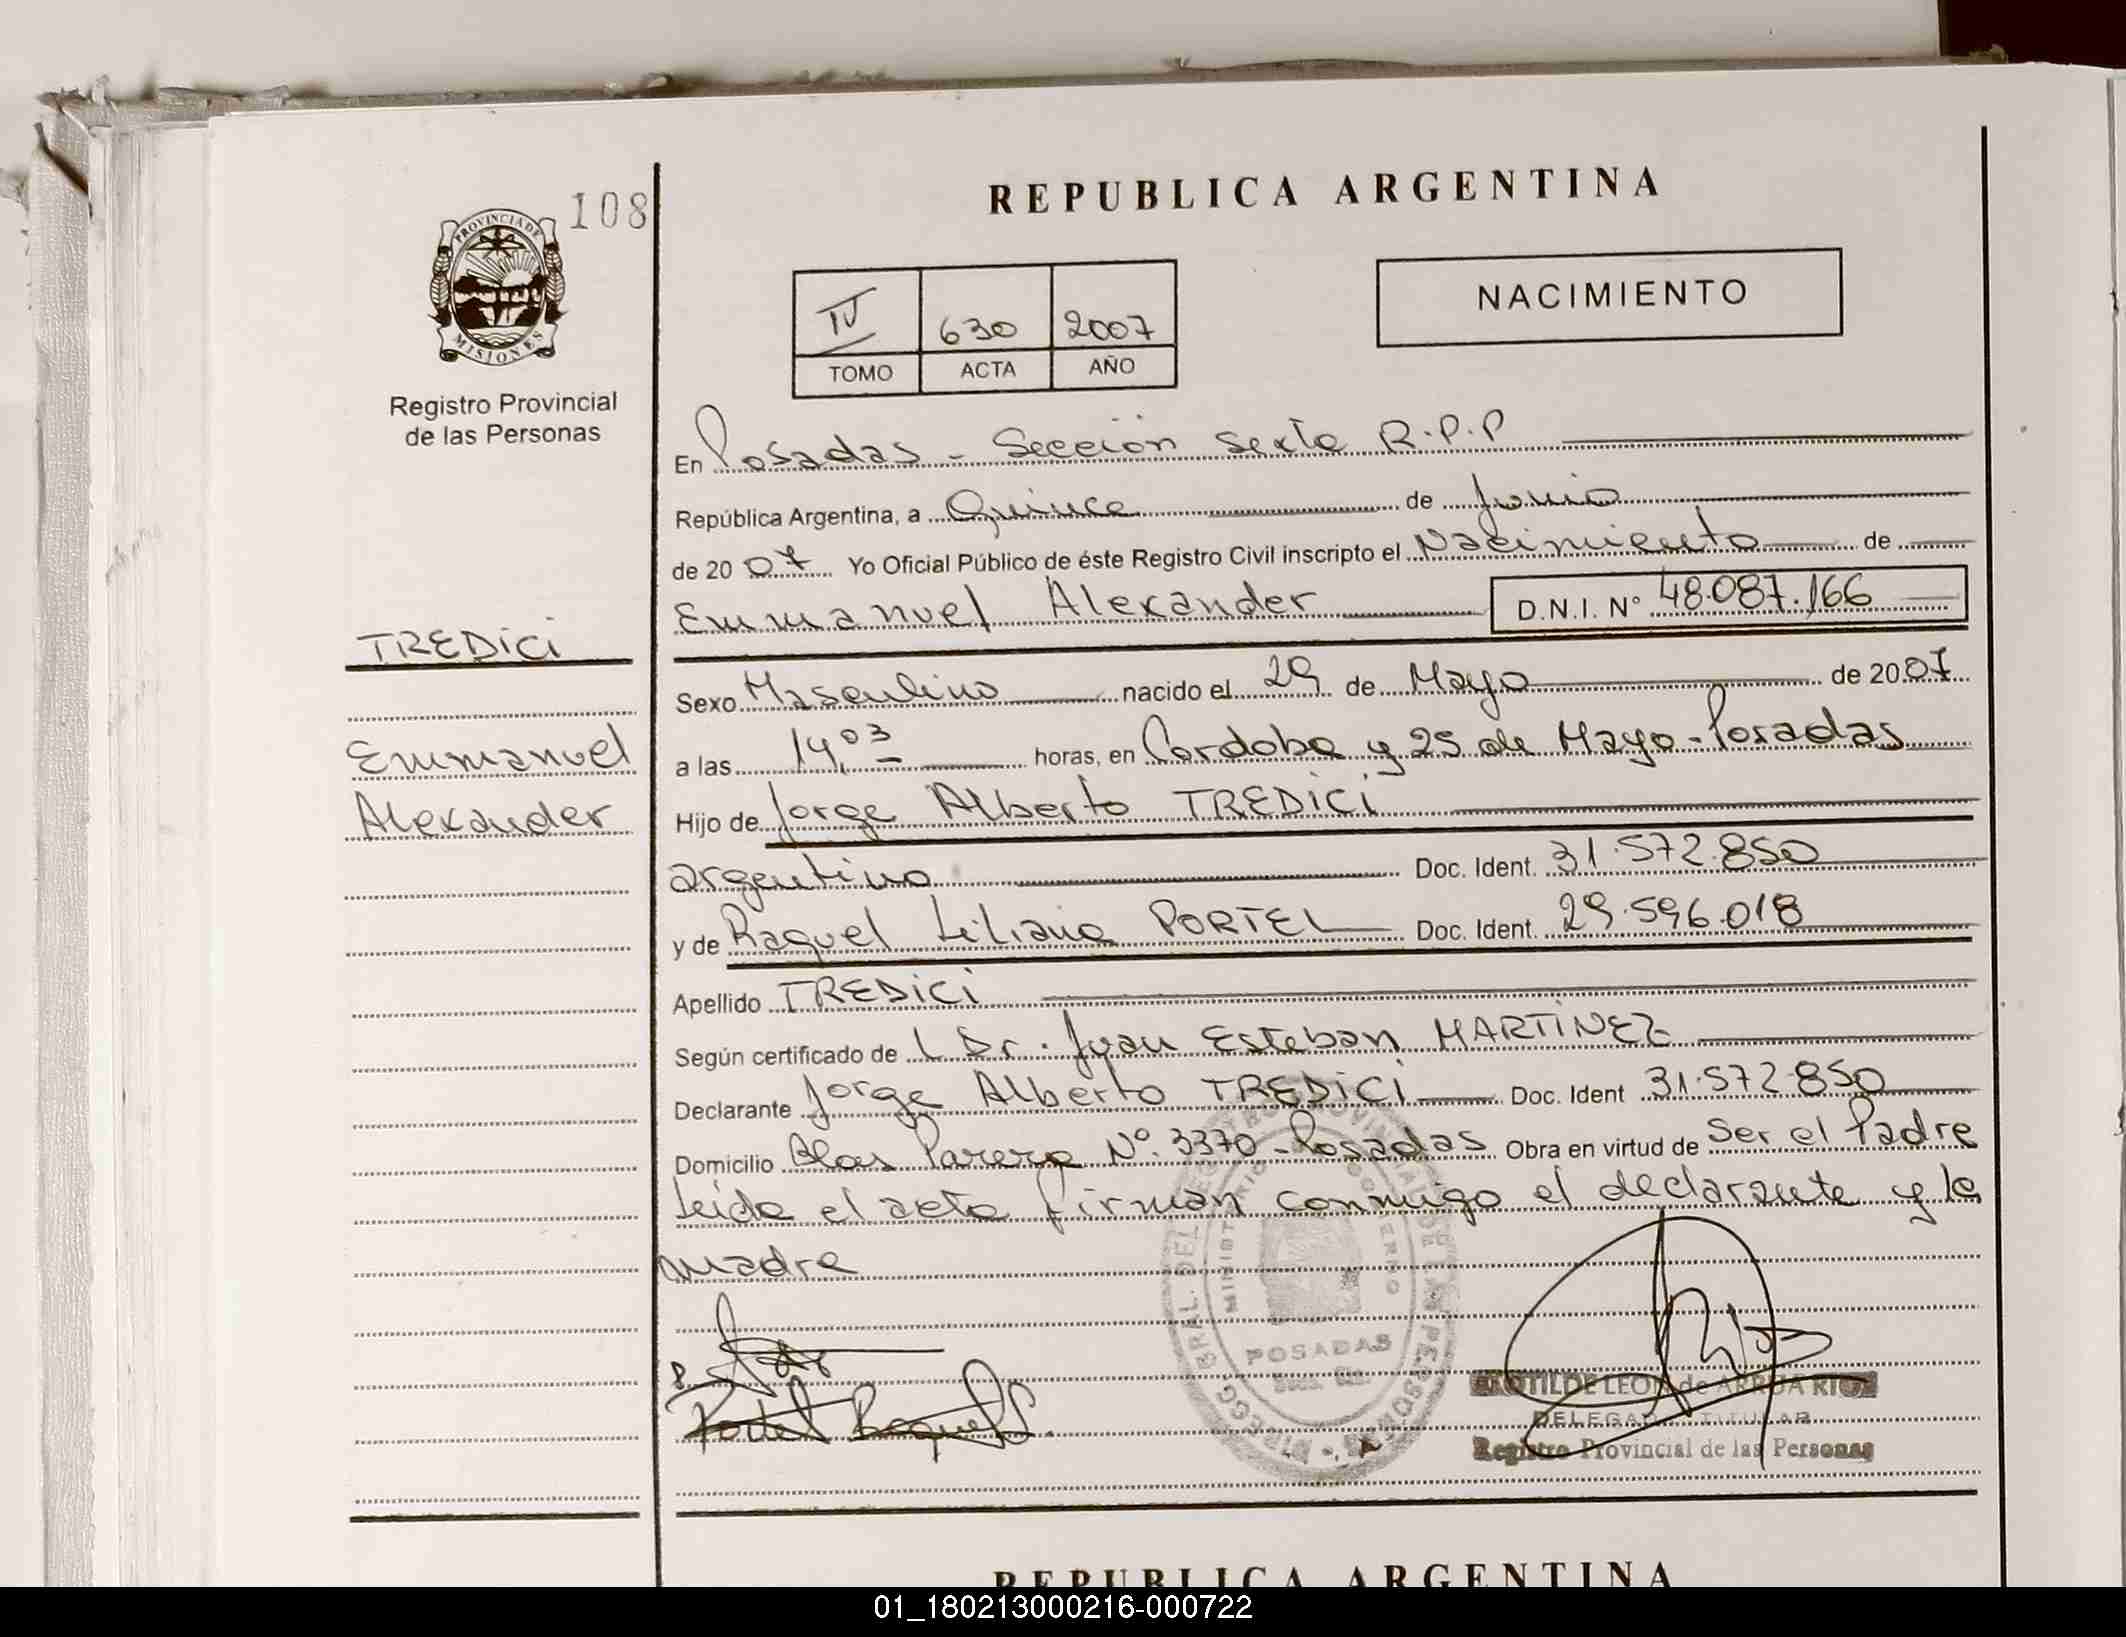 108
PROVINCIA DE
MISIONES
Registro Provincial
de las Personas
REPUBLICA ARGENTINA
IV 630 2007
TOMO ACTA AÑO
NACIMIENTO
En Posadas - Sección Sexta R.P.P
República Argentina, a Quince de Junio
de 2007 Yo Oficial Público de éste Registro Civil inscripto el Nacimiento de
Emmanuel Alexander D.N.I. N° 48.087.166
TREDICI
Emmanuel
Alexander
Sexo Masculino nacido el 29 de Mayo de 2007
a las 14,03 horas, en Cordoba y 25 de Mayo - Posadas
Hijo de Jorge Alberto TREDICI
argentino Doc. Ident. 31.572.850
y de Raquel Liliana PORTEL Doc. Ident. 29.596.018
Apellido TREDICI
Según certificado de l Dr. Juan Esteban MARTINEZ
Declarante Jorge Alberto TREDICI Doc. Ident 31.572.850
Domicilio Blas Parera N°. 3370 - Posadas Obra en virtud de Ser el Padre
leida el acta firman conmigo el declarante y la
madre
Portel Raquel L.
POSADAS
CLOTILDE LEON de ARRUA RIOS
DELEGADA TITULAR
Registro Provincial de las Personas
REPUBLICA ARGENTINA
01_180213000216-000722